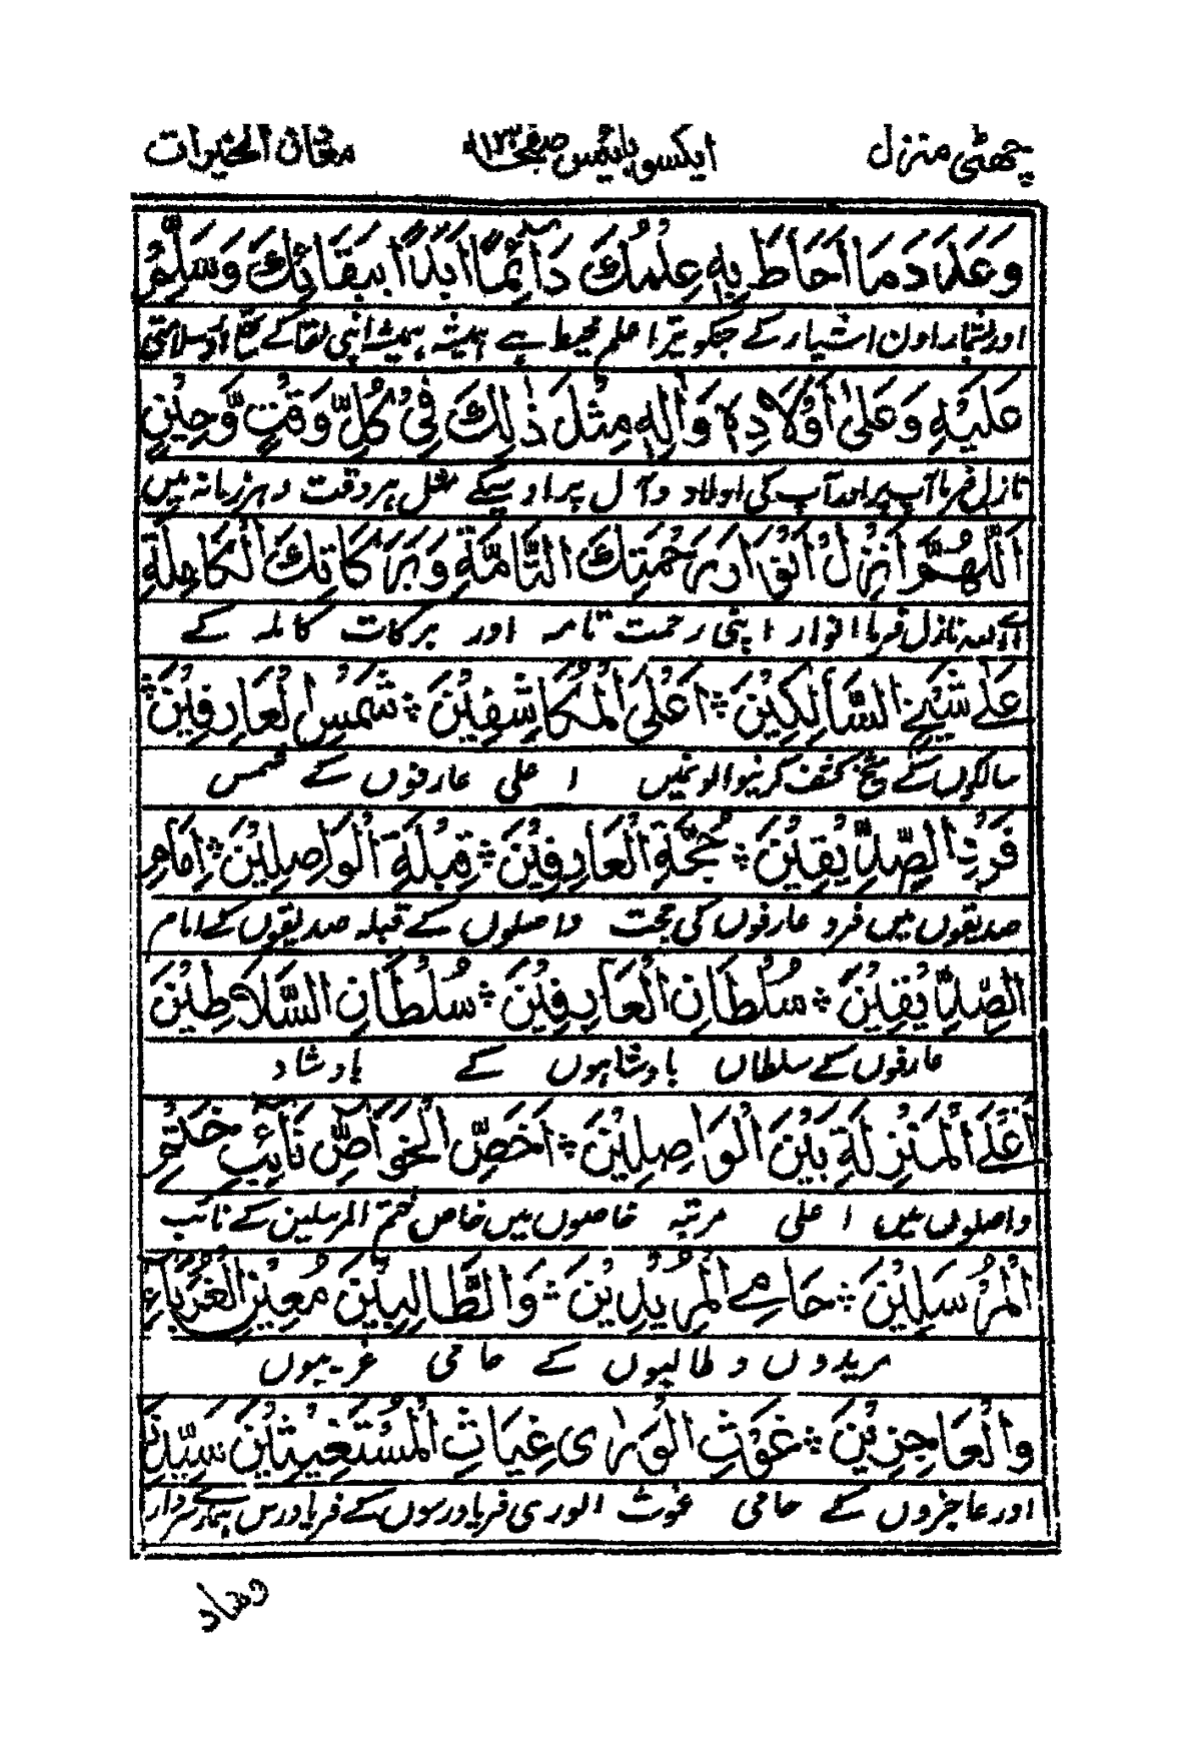 چھٹی منزل ایکسو بائیس صفحہ ۱۲۲ معدن الخیرات
وَعَدَدَ مَا اَحَاطَ بِهٖ عِلْمُكَ دَآئِمًا اَبَدًا اَبِبَقَائِكَ وَسَلِّمْ
اور بشمار اون اشیار کے جسکو تیرا علم محیط ہے ہمیشہ ہمیشہ اپنی بقا کے اور سلامتی
عَلَيْهِ وَعَلىٰ اَوْلَادِهٖ وَاٰلِهٖ مِثْلَ ذٰلِكَ فِيْ كُلِّ وَقْتٍ وَّحِيْنٍ
نازل فرما آپ پر اور آپ کی اولاد و آل پر اوسیکے مثل ہر وقت و ہر زمانہ میں
اَللّٰهُمَّ اَنْزِلْ اَنْوَارَ رَحْمَتِكَ التَّامَّةِ وَبَرَكَاتِكَ الْكَامِلَةِ
اے اللہ نازل فرما انوار اپنی رحمت تامہ اور برکات کاملہ کے
عَلٰے شَيْخِ السَّالِكِيْنَ ؞ اَعْلَى الْمُكَاشِفِيْنَ ؞ شَمْسِ الْعَارِفِيْنَ ؞
سالکوں کے شیخ کشف کرنیوالونمیں اعلی عارفوں کے شمس
فَرْدِ الصِّدِّيْقِيْنَ ؞ حُجَّةِ الْعَارِفِيْنَ ؞ قِبْلَةِ الْوَاصِلِيْنَ ؞ اِمَامِ
صدیقوں میں فرد عارفوں کی حجت واصلوں کے قبلہ صدیقوں کے امام
الصِّدِّيْقِيْنَ ؞ سُلْطَانِ الْعَارِفِيْنَ ؞ سُلْطَانِ السَّلَاطِيْنَ
عارفوں کے سلطاں بادشاہوں کے بادشاد
اَعْلَے الْمَنْزِلَةِ بَيْنَ الْوَاصِلِيْنَ ؞ اَخَصِّ الْخَوَآصِّ نَآئِبِ خَتْمِ
واصلوں میں اعلی مرتبہ خاصوں میں خاص ختم المرسلین کے نائب
الْمُرْسَلِيْنَ ؞ حَامِے الْمُرِيْدِيْنَ ؞ وَالطَّالِبِيْنَ مُعِيْنِ الْغُرَبَاءِ
مریدوں و طالبوں کے حامی غریبوں
وَالْعَاجِزِيْنَ ؞ غَوْثِ الْوَرٰى غِيَاثِ الْمُسْتَغِيْثِيْنَ سَيِّدِنَا
اور عاجزوں کے حامی غوث الوری فریادرسوں کے فریادرس ہمارے سردار